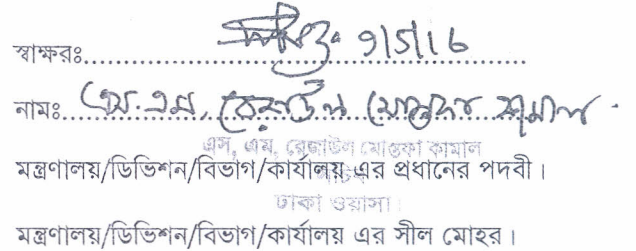 স্বাক্ষরঃ........................ 9/5/16
নামঃ.এস.এম. রেজাউল মোস্তফা কামাল
এস, এম, রেজাউল মোস্তফা কামাল
মন্ত্রণালয়/ডিভিশন/বিভাগ/কার্যালয় এর প্রধানের পদবী।
ঢাকা ওয়াসা।
মন্ত্রণালয়/ডিভিশন/বিভাগ/কার্যালয় এর সীল মোহর।